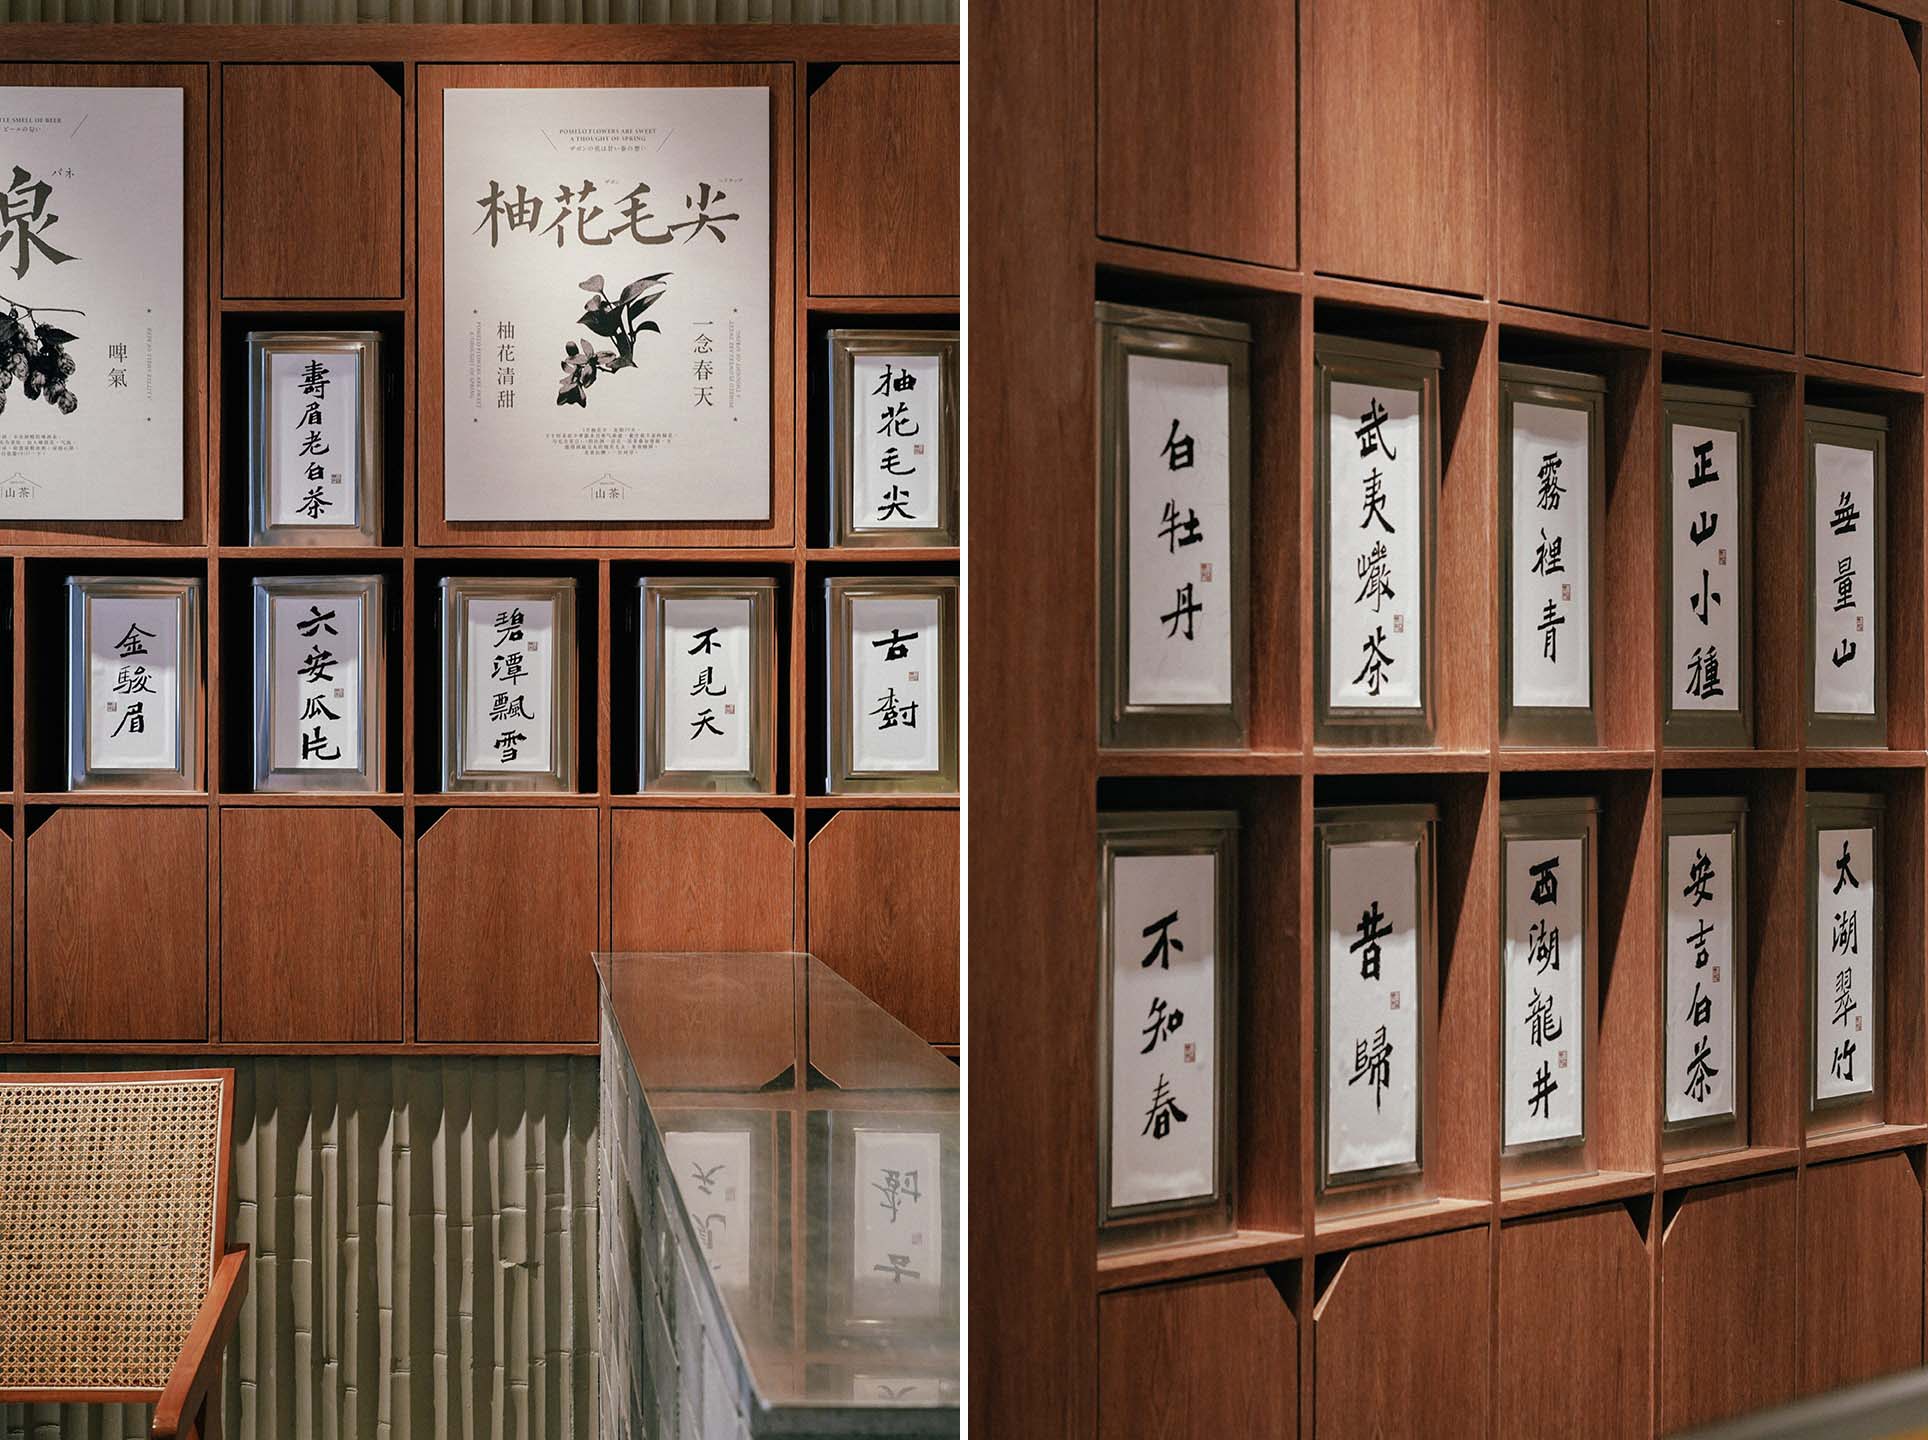 泉
パネ
啤氣
山茶
POMELO FLOWERS ARE SWEET
A THOUGHT OF SPRING
ザボンの花は甘い春の想い
柚花毛尖
ザボン
柚花清甜
一念春天
山茶
壽眉老白茶
柚花毛尖
金駿眉
六安瓜片
碧潭飄雪
不見天
古樹
白牡丹
武夷巖茶
霧裡青
正山小種
無量山
不知春
昔歸
西湖龍井
安吉白茶
太湖翠竹